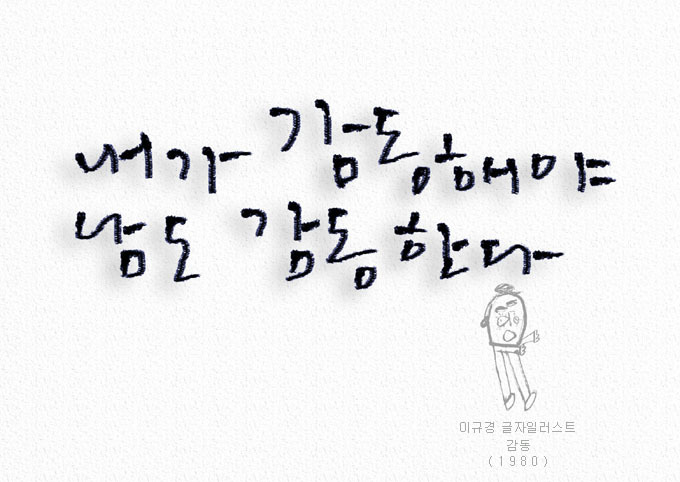 내가 감동해야
남도 감동한다
이규경 글자일러스트
감동
(1980)